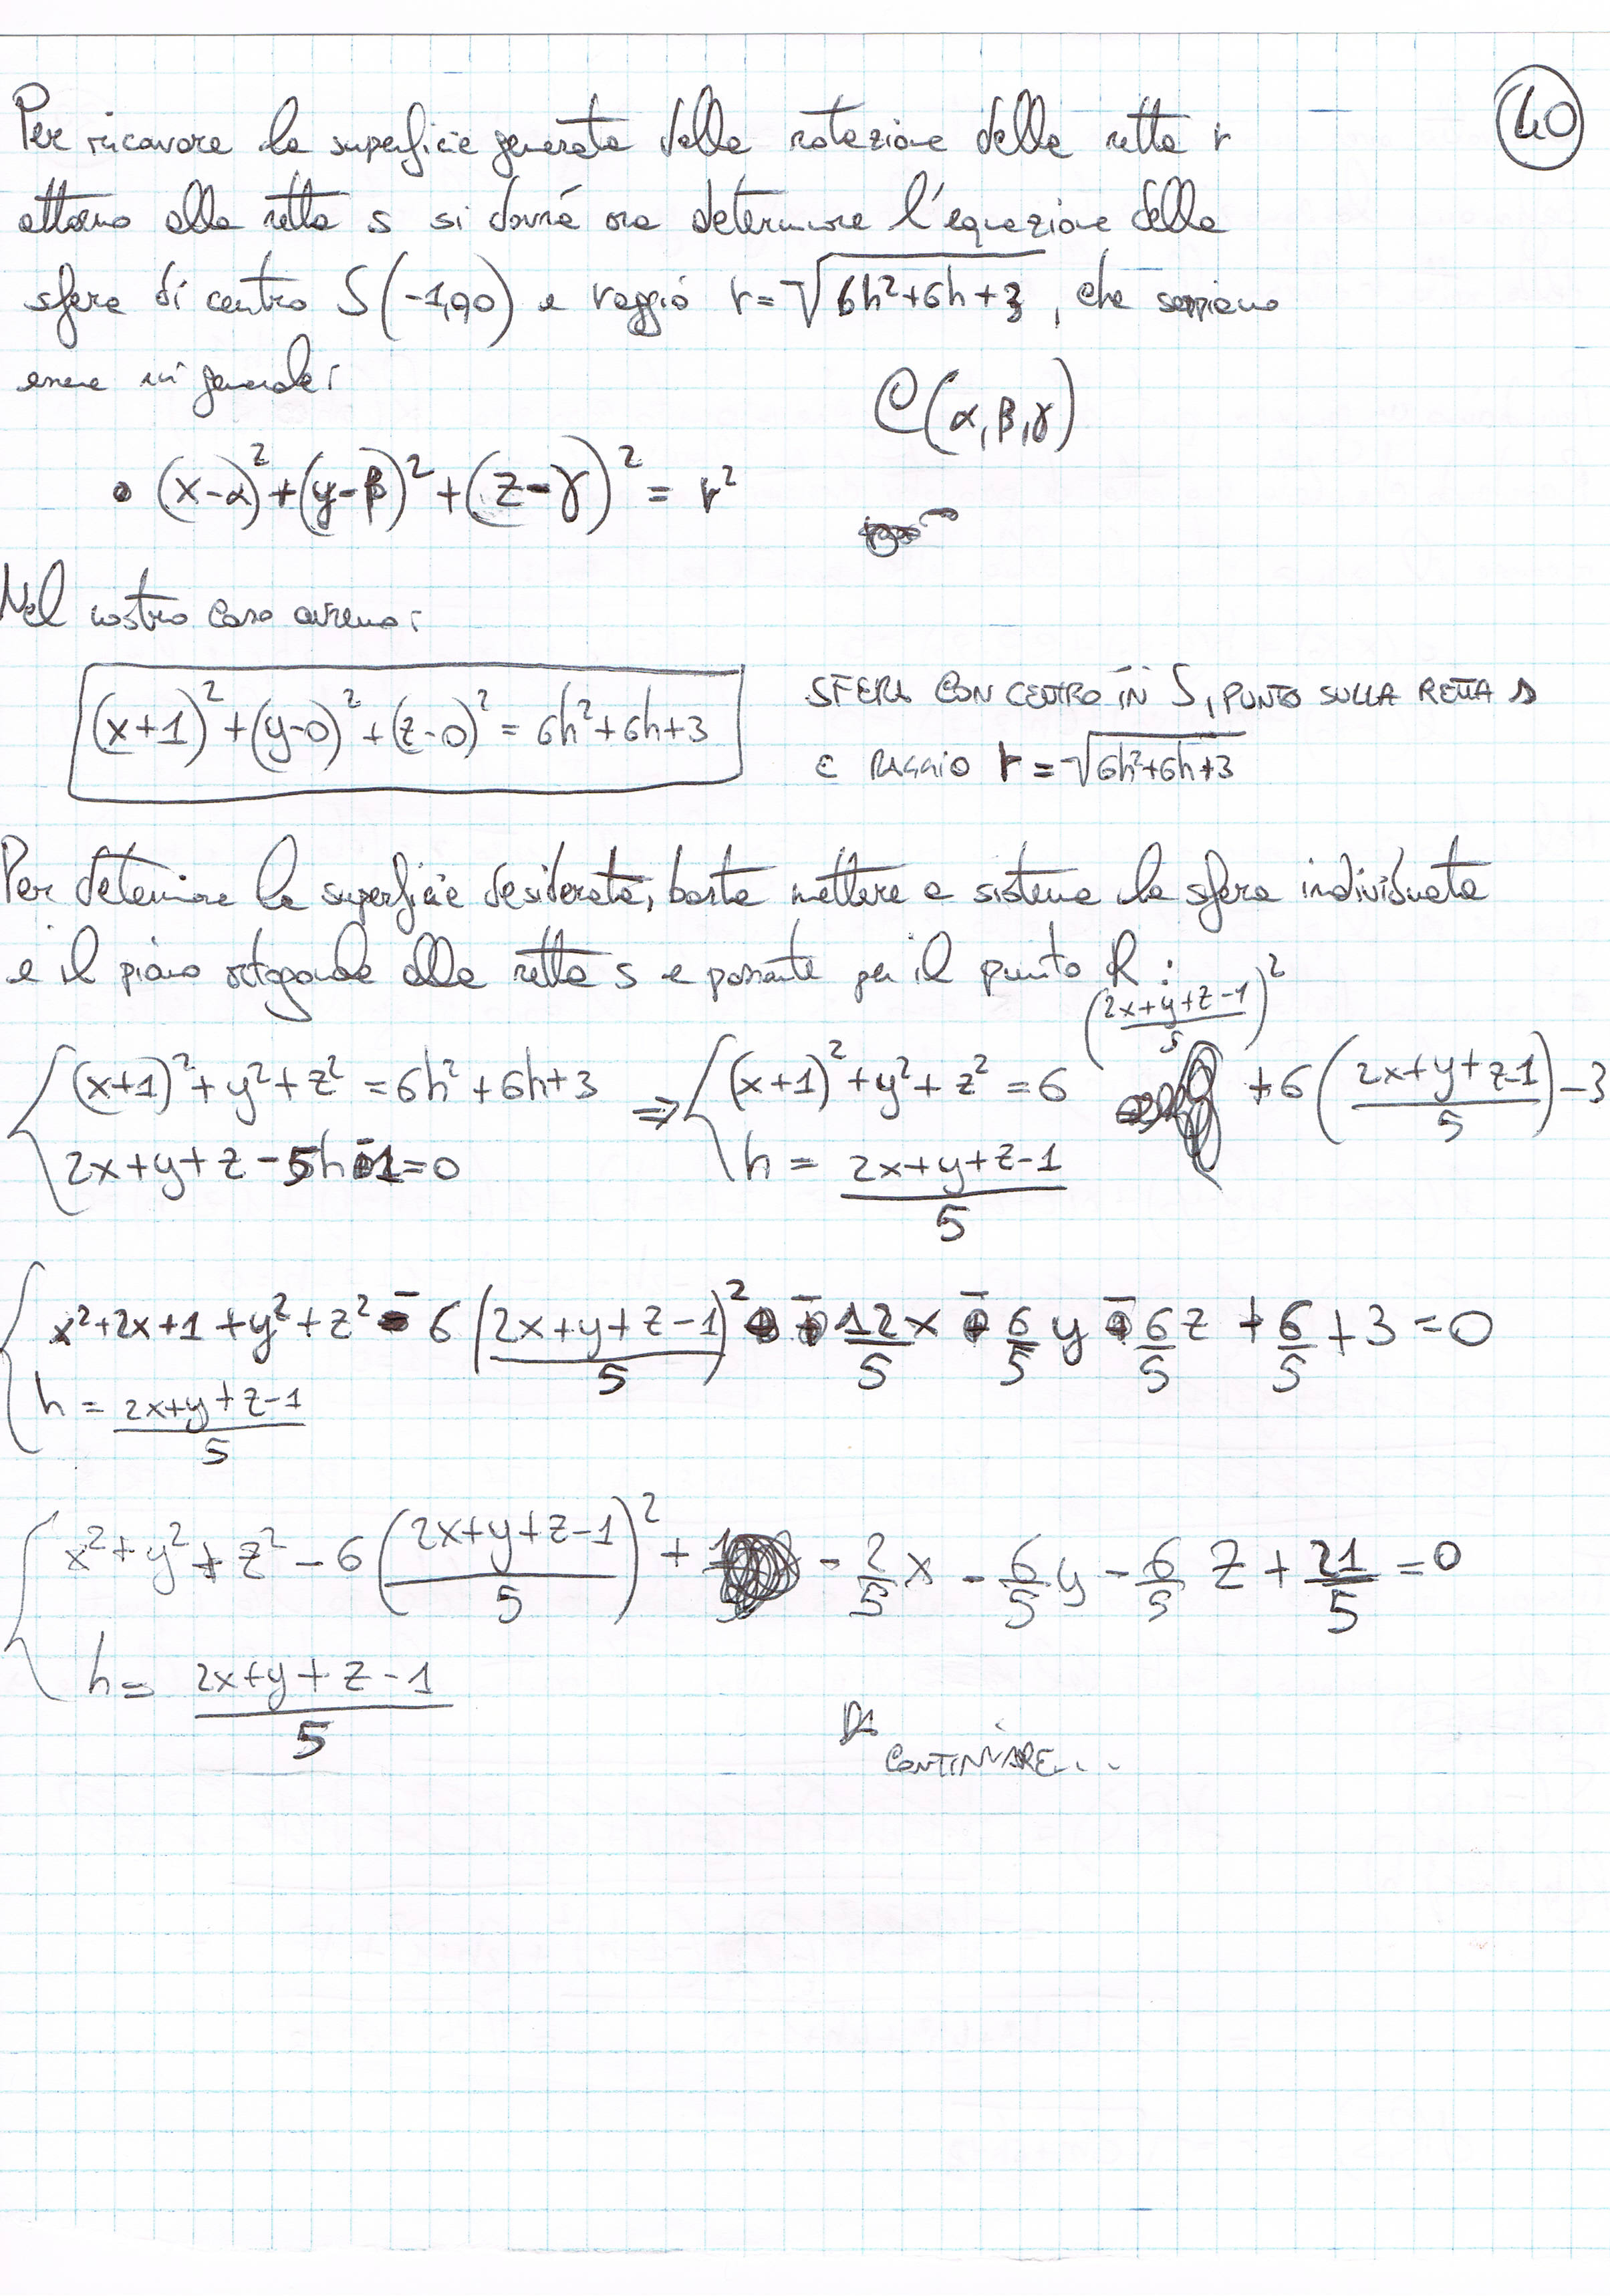 40
Per ricavare la superficie generata dalla rotazione della retta r
attorno alla retta s si dovrà ora determinare l'equazione della
sfera di centro S(-1,0,0) e raggio r=√(6h²+6h+3), che sappiamo
essere in generale:
C(α,β,γ)
• (x-α)²+(y-β)²+(z-γ)² = r²
Nel nostro caso avremo:
(x+1)²+(y-0)²+(z-0)² = 6h²+6h+3
SFERA CON CENTRO IN S, PUNTO SULLA RETTA s
E RAGGIO r=√(6h²+6h+3)
Per determinare la superficie desiderata, basta mettere a sistema la sfera individuata
e il piano ortogonale alla retta s e passante per il punto R:
{ (x+1)²+y²+z² = 6h²+6h+3 ⇒ { (x+1)²+y²+z² = 6 ((2x+y+z-1)/5)² +6 ((2x+y+z-1)/5) -3
2x+y+z-5h-1=0 h = (2x+y+z-1)/5
{ x²+2x+1+y²+z² - 6 ((2x+y+z-1)/5)² - 12/5 x - 6/5 y - 6/5 z + 6/5 + 3 = 0
h = (2x+y+z-1)/5
{ x²+y²+z² - 6 ((2x+y+z-1)/5)² + - 2/5 x - 6/5 y - 6/5 z + 21/5 = 0
h = (2x+y+z-1)/5
DA
CONTINUARE...